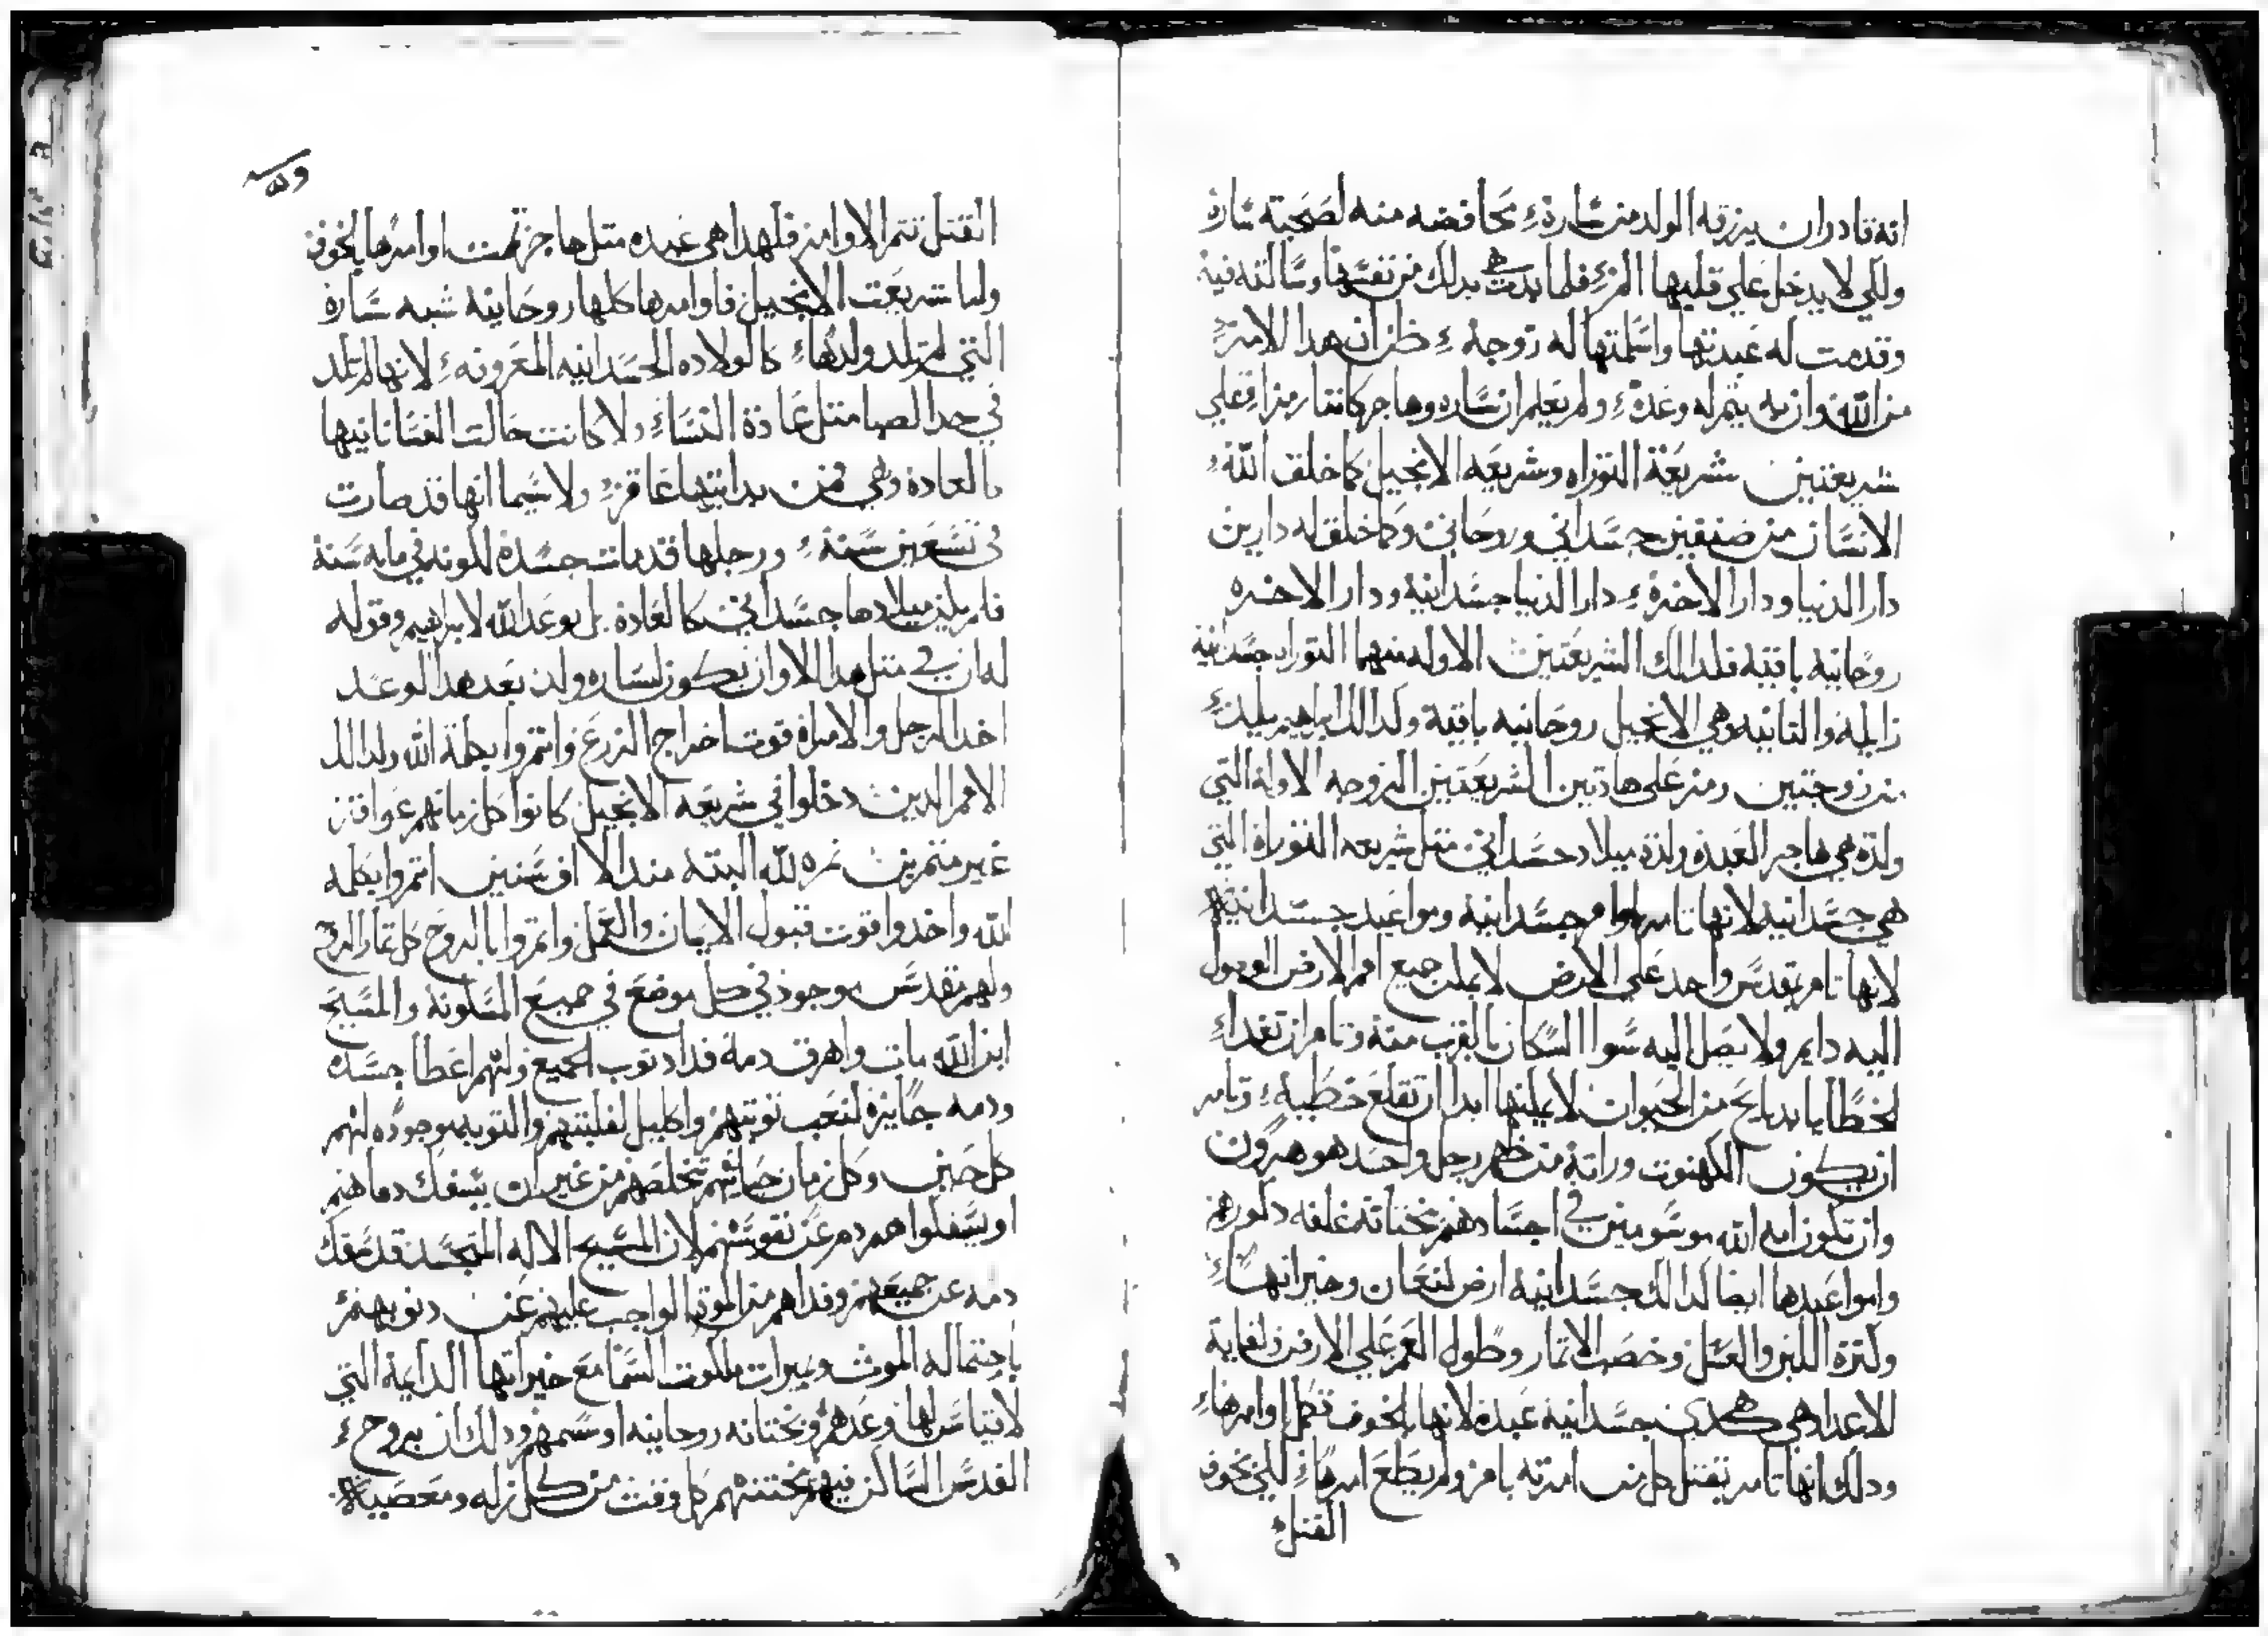 انه قادر ان يرزقه الولد من سارة محافضه منه لصحبة سارة
ولكي لا يدخل علي قلبها المر فلما بدت هي بدلك من نفسها وسالته فيه
وقدمت له عبدتها واسلمتها له زوجة ظن ان هدا الامر
من الله وان به يتم له وعده ولم يعلم ان ساره وهاجر كانتا رمزا علي
شريعتين شريعة التوراه وشريعه الانجيل كما خلق الله
الانسان من صنفين جسداني وروحاني وكما خلق له دارين
دار الدنيا ودار الاخرة دار الدنيا جسدانية ودار الاخره
روحانيه باقيه فلدالك الشريعتين الاوله منهما التوراه جسدانية
زايلة والتانيه وهي الانجيل روحانيه باقية ولدالك ابراهيم يلد
من زوجتين رمز علي هادين الشريعتين الزوجه الاولة التي
ولده هي هاجر العبده ولدة ميلاد جسداني متل شريعه التوراة التي
هي جسدانيه لانها تامر باوامر جسدانية ومواعيد جسدانية
لانها تامر بقدس واحد علي الارض لا يمكن جميع امم الارض الوصول
اليه دايم ولا يصل اليه سوا السكان بالقرب منة وتامر ان تغدا
الخطايا بدبايح من الحيوان لا يمكنها ابدا ان تقلع خطية وتامر
ان يكون الكهنوت وراتة من ظهر رجل واحد هو هرون
وان تكون امة الله موسومين في اجسادهم بختانة غلفه دكورهم
ومواعيدها ايضا كدالك جسدانية ارض كنعان وخيراتها
وكترة اللبن والعسل وخصب الاتمار وطول العمر علي الارض ونقاية
الاعدا هي هكدي جسدانية عبدة لانها بالخوف تكمل اوامرها
ودلك انها تامر بقتل كل من امرته بامر ولم يطع امرها للي بخوف
القتل
القتل تتم الاوامر فلهدا هي عبده متل هاجر تمت اوامرها بالخوف
واما شريعت الانجيل فاوامرها كلها روحانية شبه سارة
التي لم تلد ولدها كالولاده الجسدانيه المعروفه لانها لم تلد
في حد الصبا متل عادة النسا ولا كانت حالت النسا تاتيها
بالعاده وهي فمن بدايتها عاقر ولا سيما انها قد صارت
في تسعين سنة ورجلها قد مات جسدة لكونه في مايه سنة
فلم يكن ميلادها جسداني كالعادة بل بوعد الله لابراهيم وقوله
له ان في متل هدا الاوان يكون لساره ولد بعد هدا الوعد
اخد الرجل والامراة قوت اخراج الزرع واتمروا بكلمة الله ولدالك
الامم الدين دخلوا في شريعه الانجيل كانوا كل زمانهم عواقر
غير متمرين تمره لله البته مند الاف سنين اتمروا بكلمه
الله واخدوا قوت قبول الايمان والعمل واتمروا بالروح كل تمار الروح
ولهم تقدس موجود في كل موضع في جميع المسكونة والمسيح
ابن الله مات واهرق دمة فدا دنوب الجميع ولهم اعطا جسده
ودمه جايزة لتعب توبتهم واكليل لغلبتهم والتوبه موجوده لهم
كل حين وكل زمان تخلصهم من غير ان يسفك دماهم
او يسفكوا هم دم عن نفوسهم لان المسيح الاله المتجسد قد سفك
دمه عن جميعهم وفداهم من الموت الواجب عليهم عن دنوبهم
باحتماله الموت وميرات ملكوت السما مع خيراتها الدايمة التي
لانتياس لها وعدهم وبختانه روحانيه اوسمهم ودلك ان بروح
القدس الساكن فيهم بختنهم كل وقت من كل زله ومعصية